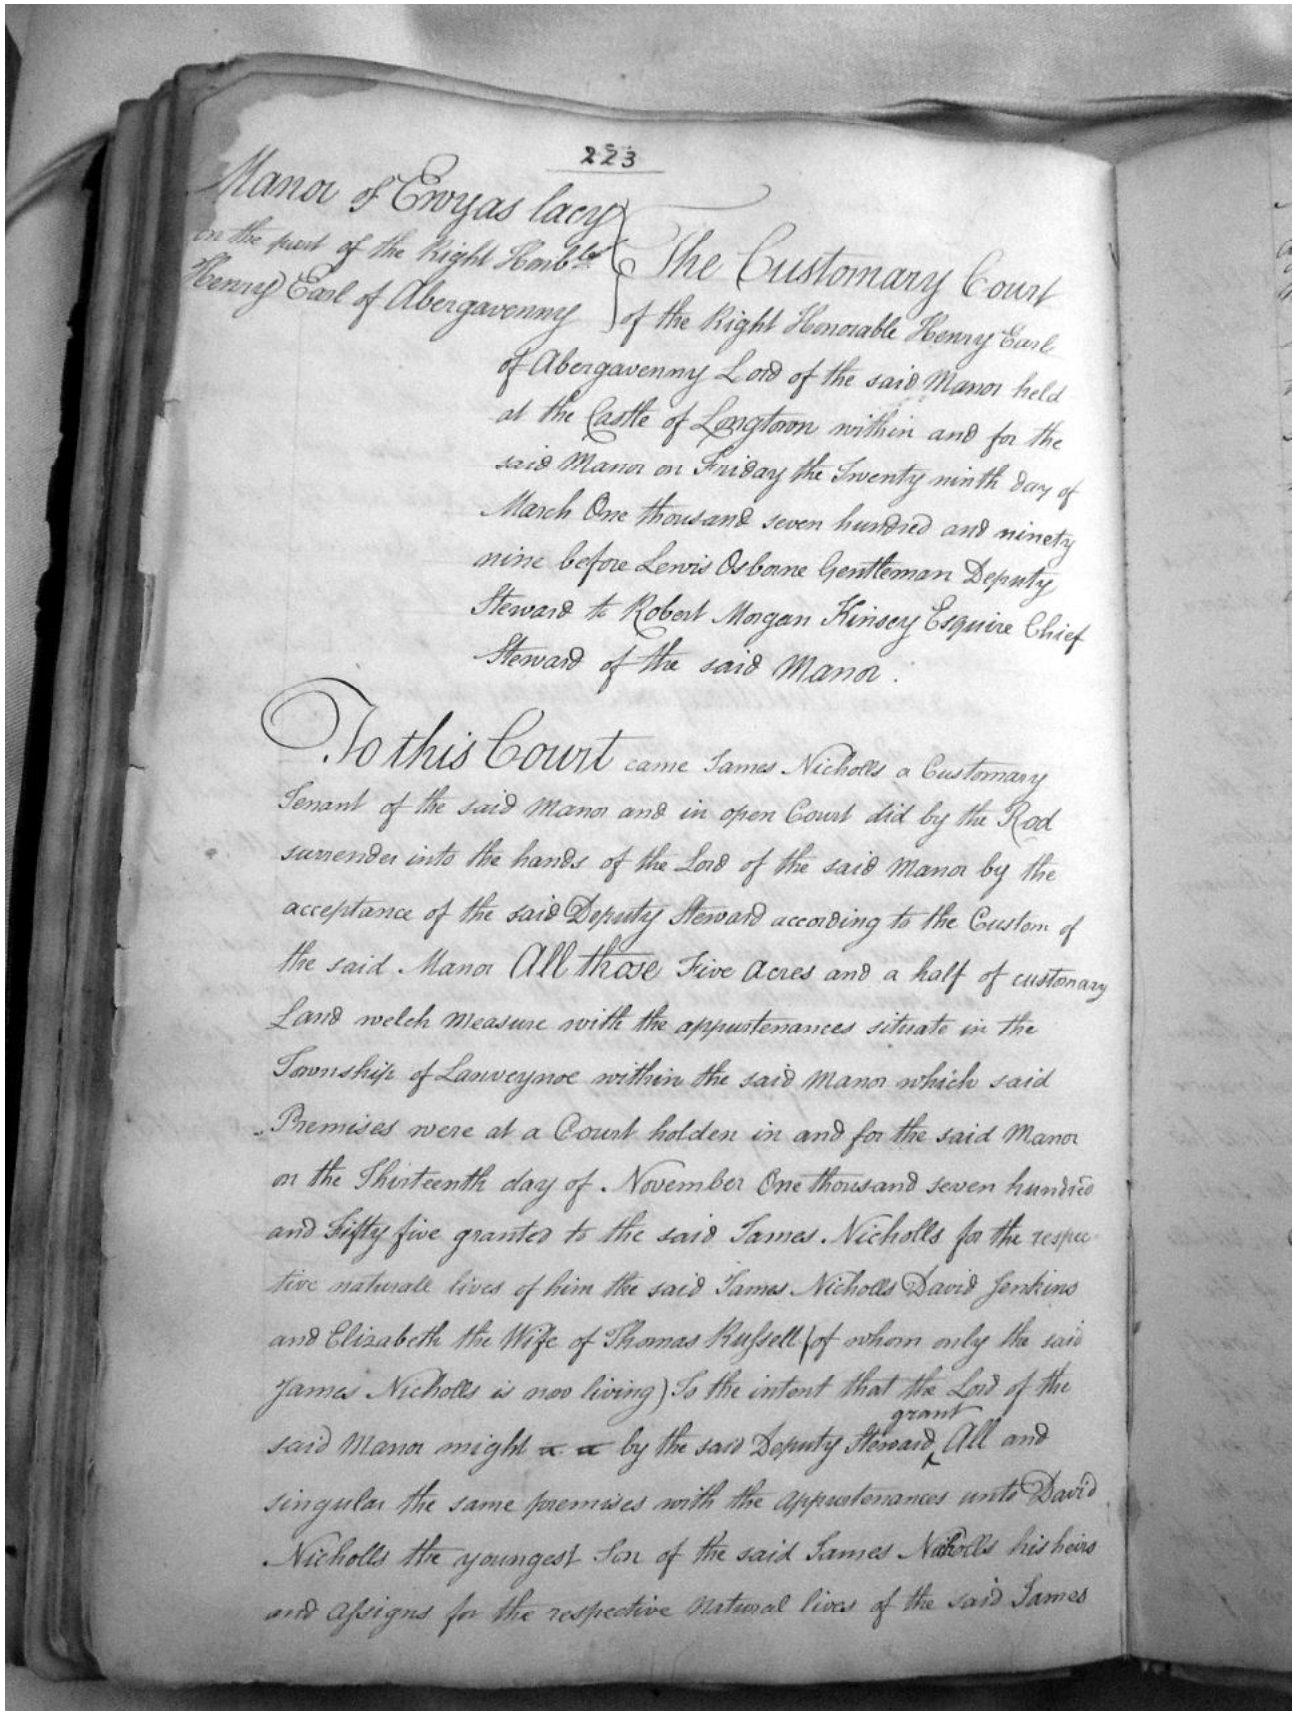 223
Manor of Ewyas lacy
on the part of the Right Honb.le
Henry Earl of Abergavenny
The Customary Court
of the Right Honorable Henry Earl
of Abergavenny Lord of the said Manor held
at the Castle of Longtown within and for the
said Manor on Friday the Twenty ninth day of
March One thousand seven hundred and ninety
nine before Lewis Osborne Gentleman Deputy
Steward to Robert Morgan Kinsey Esquire Chief
Steward of the said Manor.
To this Court came James Nicholls a Customary
Tenant of the said Manor and in open Court did by the Rod
surrender into the hands of the Lord of the said Manor by the
acceptance of the said Deputy Steward according to the Custom of
the said Manor All those Five Acres and a half of customary
Land welch measure with the appurtenances situate in the
Township of Lanveynoe within the said Manor which said
Premises were at a Court holden in and for the said Manor
on the Thirteenth day of November One thousand seven hundred
and Fifty five granted to the said James Nicholls for the respec
tive naturall lives of him the said James Nicholls David Jenkins
and Elizabeth the Wife of Thomas Russell (of whom only the said
James Nicholls is now living) To the intent that the Lord of the
said Manor might by the said Deputy Steward grant All and
singular the same premises with the appurtenances unto David
Nicholls the youngest Son of the said James Nicholls his heirs
and Assigns for the respective Natural lives of the said James